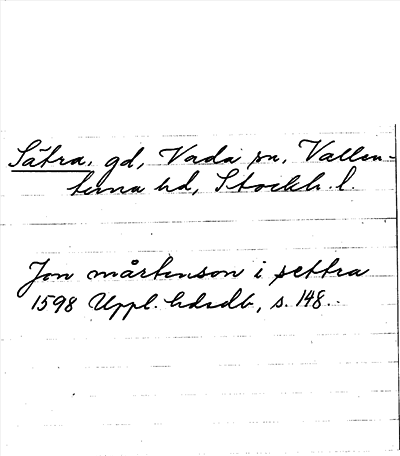 Sätra, gd, Vada sn, Vallen-
tuna hd, Stockh. l.
Jon mårtenson i settra
1598 Uppl. hdsdb, s. 148.